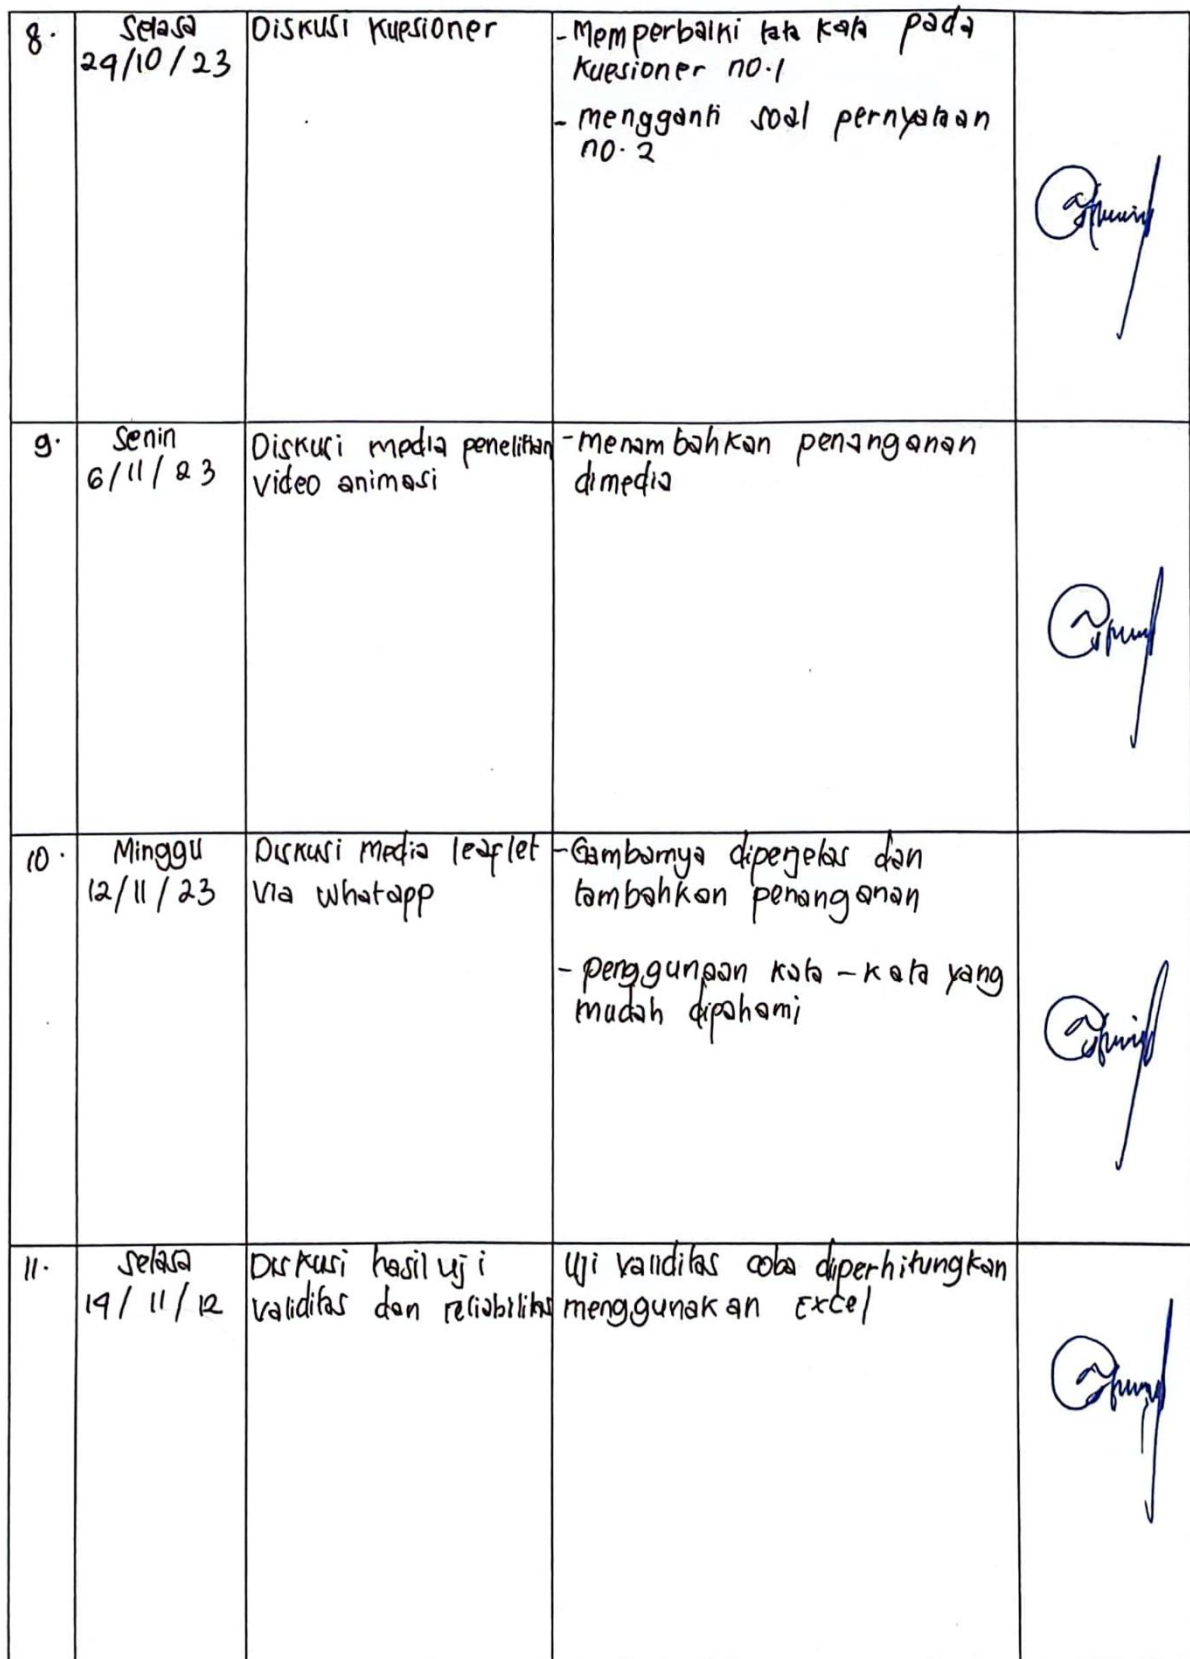 8.
Selasa
24/10/23
Diskusi Kuesioner
- Memperbaiki tata kata pada
Kuesioner no.1
- mengganti soal pernyataan
no. 2
9.
Senin
6/11/23
Diskusi media penelitian
video animasi
- menambahkan penanganan
dimedia
10.
Minggu
12/11/23
Diskusi media leaflet
via whatapp
- Gambarnya diperjelas dan
tambahkan penanganan
- penggunaan kata - kata yang
mudah dipahami
11.
Selasa
14/11/12
Diskusi hasil uji
validitas dan reliabilitas
Uji validitas coba diperhitungkan
menggunakan Excel